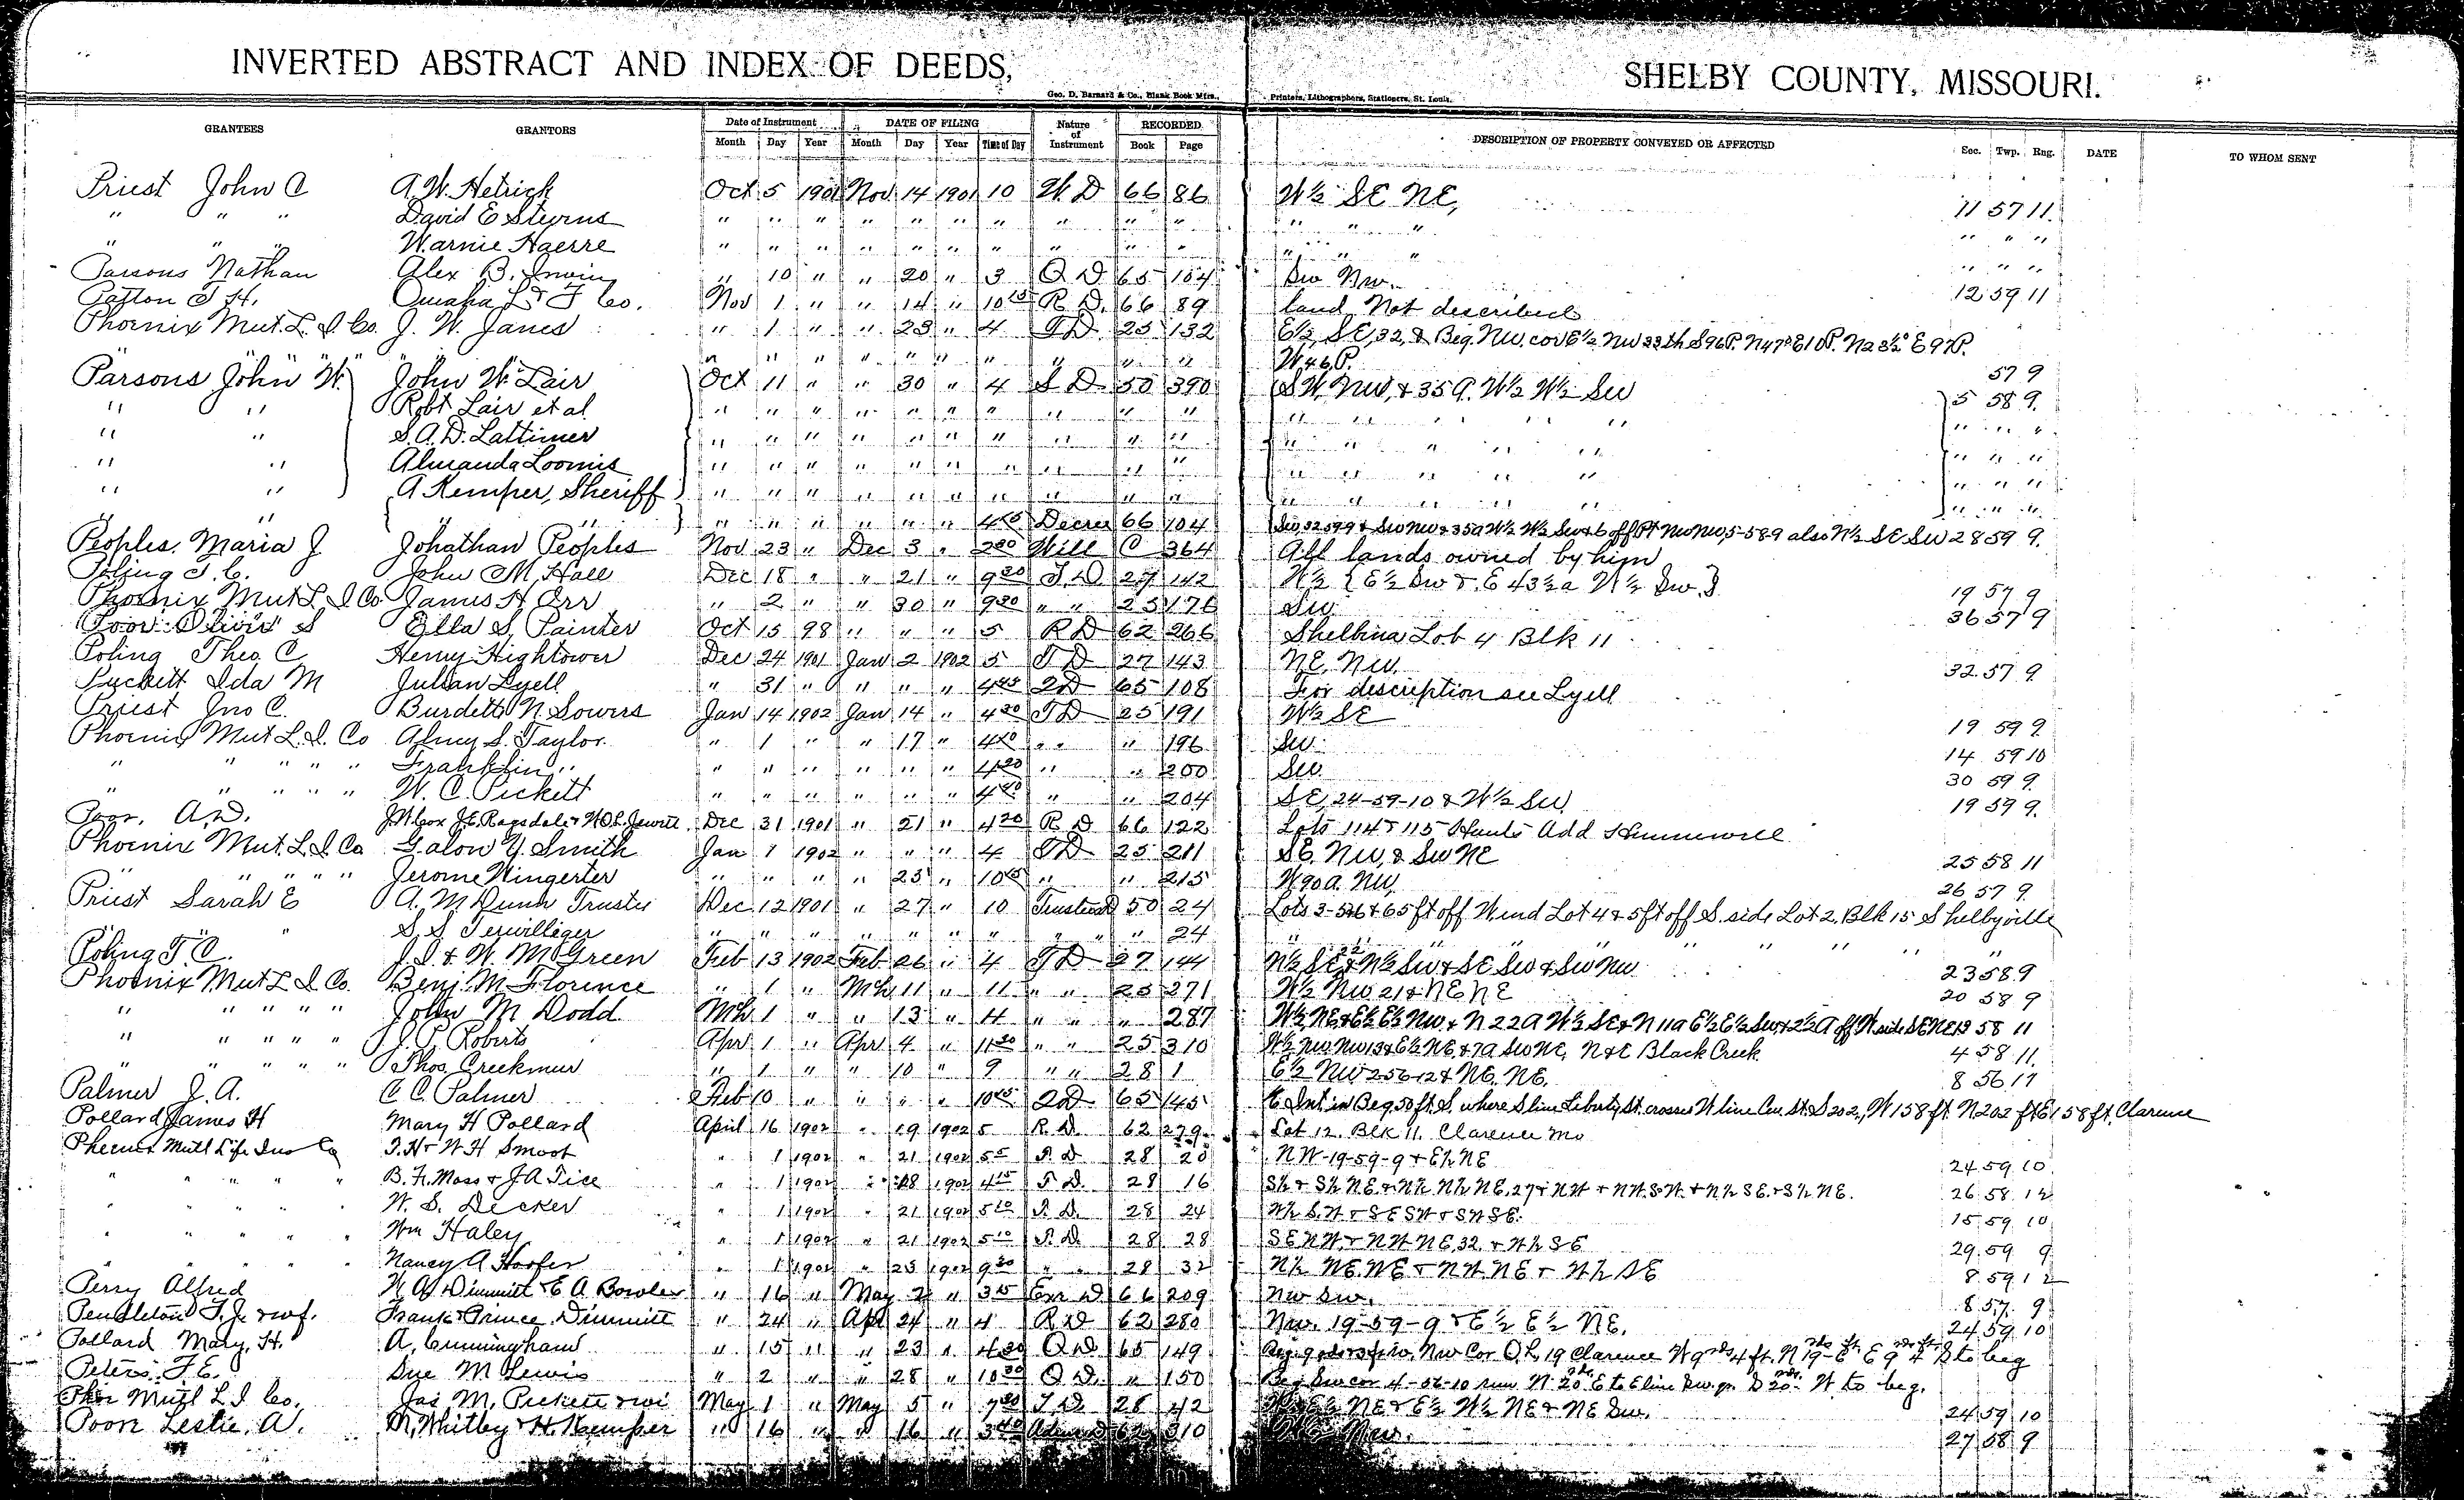 INVERTED ABSTRACT AND INDEX OF DEEDS, SHELBY COUNTY, MISSOURI.
Geo. D. Barnard & Co., Blank Book Mfrs., Printers, Lithographers, Stationers, St. Louis.
GRANTEES GRANTORS Date of Instrument DATE OF FILING Nature of Instrument RECORDED DESCRIPTION OF PROPERTY CONVEYED OR AFFECTED Sec. Twp. Rng. DATE TO WHOM SENT
Month Day Year Month Day Year Time of Day Book Page
Priest John C A. W. Hetrick Oct 5 1901 Nov 14 1901 10 W. D 66 86 W½ SE NE, 11 57 11
" " " David E Styrns " " " " " " " " " " " " " " " "
" " " Warnie Haerre " " " " " " " " " " " " " " " "
Parsons Nathan Alex B. Irwin " 10 " " 20 " 3 Q D 65 104 Sw Nw. 12 59 11
Patton T. H. Omaha L & T Co. Nov 1 " " 14 " 10 15 R D. 66 89 land Not described
Phoenix Mut. L. I. Co. J. W. Janes " 1 " " 23 " 4 T D. 25 132 E½ SE, 32, & Beg. NW. cor E½ NW 33 th S 96 P. N 47° E 10 P. N 23½° E 97 P.
" " " " " " " " " " " " " " " W 46 P. 57 9
Parsons John W. John W. Lair Oct 11 " " 30 " 4 S D 50 390 SW, NW, & 35 a. W½ W½ Sw 5 58 9
" " Robt Lair et al " " " " " " " " " " " " " " " " "
" " S. A. D. Lattimer " " " " " " " " " " " " " " " " "
" " Almanda Loomis " " " " " " " " " " " " " " " " "
" " A Kemper, Sheriff " " " " " " " " " " " " " " " " "
" " " " " " " " " " 4 Decree 66 104 & Sw NW & 35 a W½ W½ Sw & 6 off Pt Nw Nw, 5-58-9 also N½ SE Sw 28 59 9
Peoples, Maria J Johathan Peoples Nov 23 " Dec 3 " 2 00 Will C 364 All lands owned by him
Poling T. C. John M. Hall Dec 18 " " 21 " 9 20 T D 27 142 W½ { E½ Sw & E 43½ a W½ Sw. } 19 57 9
Phoenix Mut L I Co James H Orr " 2 " " 30 " 9 30 " " 25 176 Sw 36 57 9
Poor S Ella S. Painter Oct 15 98 " " " 5 R D 62 266 Shelbina Lot 4 Blk 11
Poling Theo. C Henry Hightower Dec 24 1901 Jan 2 1902 5 T D 27 143 NE, NW. 32 57 9
Puckett Ida M Julian Lyell " 31 " " " " 4 45 2 D 65 108 For description see Lyell
Priest Jno C. Burdette N. Sowers Jan 14 1902 Jan 14 " 4 30 T D 25 191 W½ SE 19 59 9
Phoenix Mut L. I. Co Almy S. Taylor " 1 " " 17 " 4 " " " 196 Sw 14 59 10
" " " " " Franklin " " " " " " " 4 20 " " 200 Sw. 30 59 9
" " " " " W. C. Pickett " " " " " " 4 " " 204 SE, 24-59-10 & W½ SW 19 59 9
Poor, A. D. J. N. Cox J. E. Ragsdale & W. O. L. Jewett Dec 31 1901 " 21 " 4 20 R D 66 122 Lots 114 & 115 Hunts Add Hunnewell
Phoenix Mut. L. I Co Galon Y. Smith Jan 1 1902 " " " 4 T D 25 211 SE. NW, & Sw NE 25 58 11
" " " " Jerome Wingerter " " " " 25 " 10 " " 215 W 90 a. NW, 26 57 9
Priest Sarah E A. M Dunn Trustee Dec 12 1901 " 27 " 10 Trustees D 50 24 Lots 3-5 & 6 & 65 ft off W end Lot 4 & 5 ft off S. side Lot 2, Blk 15 Shelbyville
" S. S Terwilleger " " " " " " " " " 24 " " " " "
Poling T. C. J. I. & W. M Green Feb 13 1902 Feb 26 " 4 T D 27 144 N½ SE & N½ Sw & SE Sw & Sw Nw 23 58 9
Phoenix Mut L I Co. Benj. M Florence " 1 " Mch 11 " 11 " " 25 271 W½ NW 21 & NE NE 20 58 9
" " " " " John M Dodd Mch 1 " " 13 " 4 " " " 287 W½ NE & E½ E½ NW, & N 22 A W½ SE & N 11 a E½ E½ Sw & 2½ A off W side SE NE 13 58 11
" " " " " J. P. Roberts Apr 1 " Apr 4 " 11 30 " " 25 310 W½ NW NW 13 & E½ NE & 7 a SW NE, N & E Black Creek 4 58 11
" " " " " Thos. Creekmur " 1 " " 10 " 9 " " 28 1 E½ NW 25 56 12 & NE. NE. 8 56 11
Palmer J. A. C. C. Palmer Feb 10 " " " " 10 45 2 D 65 145 Int in Beg. 50 ft S. where S line Liberty St. crosses W line Cen. St. S 202, W 158 ft. N 202 ft E 158 ft. Clarence
Pollard James H Mary H Pollard April 16 1902 " 19 1902 5 R. D. 62 279 Lot 12. Blk 11. Clarence Mo
Pheenix Mutl Life Ins Co T. H & W H Smoot " 1 1902 " 21 1902 5 5 T. D 28 20 NW-19-59-9 & E½ NE 24 59 10
" " " " " B. F. Moss & J A Tice " 1 1902 " 18 1902 4 15 T D. 28 16 S½ & S½ NE & N½ N½ NE, 27 & NW & NW. SW. & N½ SE. & S½ NE. 26 58 12
" " " " " W. S. Decker " 1 1902 " 21 1902 5 10 T. D. 28 24 W½ S. W & SE SW & SW SE. 15 59 10
" " " " " Wm Haley " 1 1902 " 21 1902 5 10 T. D. 28 28 SE NW. & NW NE, 32. & W½ SE 29 59 9
" " " " " Nancy A Hoofer " 1 1902 " 23 1902 9 30 " " 28 32 N½ NE. NE & NW. NE & W½ SE 8 59 12
Perry Alfred W. A. Dimmitt & E A Bowler " 16 " May 2 " 3 15 Exr D 66 209 NW SW. 8 57 9
Pendleton T. J. & wf. Frank & Prince Dimmitt " 24 " Apl 24 " 4 R D 62 280 Nw. 19-59-9 & E½ E½ NE. 24 59 10
Pollard Mary, H. A. Cunningham " 15 " " 23 " 4 30 Q D 65 149 Beg. Nw Cor O. L. 19 Clarence to beg
Peters. F. E. Sue M Lewis " 2 " " 28 " 10 30 Q D. " 150 Beg Sw cor 4-56-10 run N 20 rds. E to E line Sw. qr. S 20 rds. W to beg.
Phoe Mutl L I Co. Jas M. Pickett & wi May 1 " May 5 " 7 30 T D 28 42 E½ NE & E½ W½ NE & NE Sw. 24 59 10
Poor Leslie, A. M. Whitley & H. Kemper " 16 " " 16 " 3 40 62 310 27 58 9